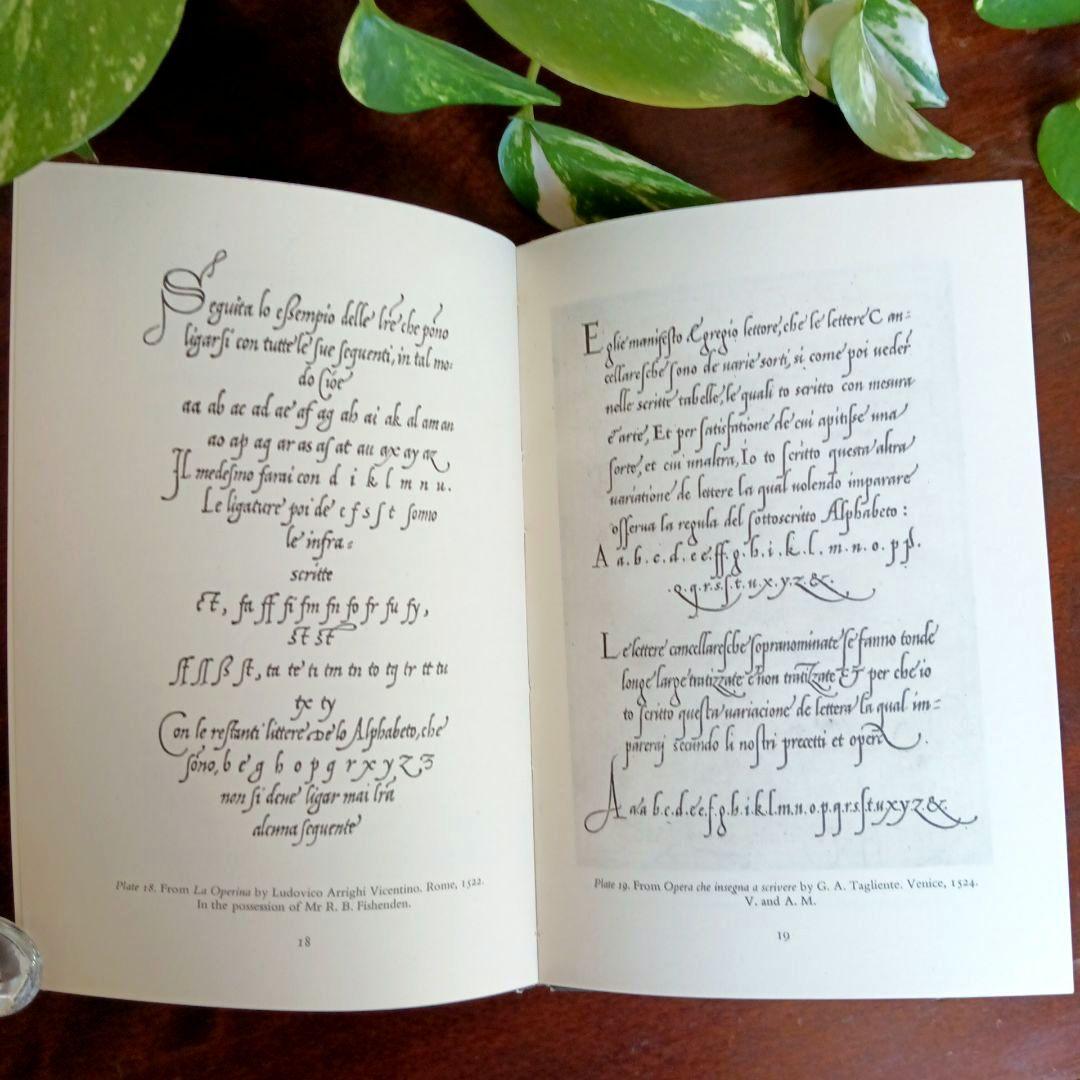 Seguita lo eſſempio delle lr̃e che põno
ligarſi con tutte le ſue ſequenti, in tal mo-
do Cioe
aa ab ac ad ae af ag ah ai ak al am an
ao ap aq ar as aſ at au ax ay az
Il medeſmo farai con d i k l m n u.
Le ligature poi de c f s ſ t ſonno
le infra-
scritte
ct, fa ff fi fm fn fo fr fu fy,
st st
ſſ ſſ ß ſt, ta te ti tm tn to tq tr tt tu
tx ty
Con le reſtanti littere De lo Alphabeto, che
ſõno, b e g h o p q r x y z ȝ
non ſi deue ligar mai lr̃a
alcuna ſequente
Plate 18. From La Operina by Ludovico Arrighi Vicentino. Rome, 1522.
In the possession of Mr R. B. Fishenden.
18
Eglie manifeſto Egregio lettore, che le lettere Can-
cellareſche ſono de uarie sorti, si come poi ueder
nelle scritte tabelle, le quali to scritto con mesura
e arte, Et per ſatisfatione de cui apitiſſe una
ſorte, et cui unaltra, Io to ſcritto queſta altra
uariatione de lettere la qual uolendo imparare
oſſerua la regula del ſottoscritto Alphabeto :
A a.b.c.d.e e.ff.g.h.i.k.l.m.n.o.p p.
.q.q.r.s.ſ.t.u.x.y.z.&.
Le lettere cancellareſche ſopranominate ſe fanno tonde
longe large tratizzate e non tratizzate ET per che io
to ſcritto queſta uariacione de lettera la qual im-
pareraj secundo li noſtri precetti et opere .
A a a b.c.d.e e.f.g.h.i.k.l.m.n.o.p.q.r.s.ſ.t.u.x y z.&.
Plate 19. From Opera che insegna a scrivere by G. A. Tagliente. Venice, 1524.
V. and A. M.
19